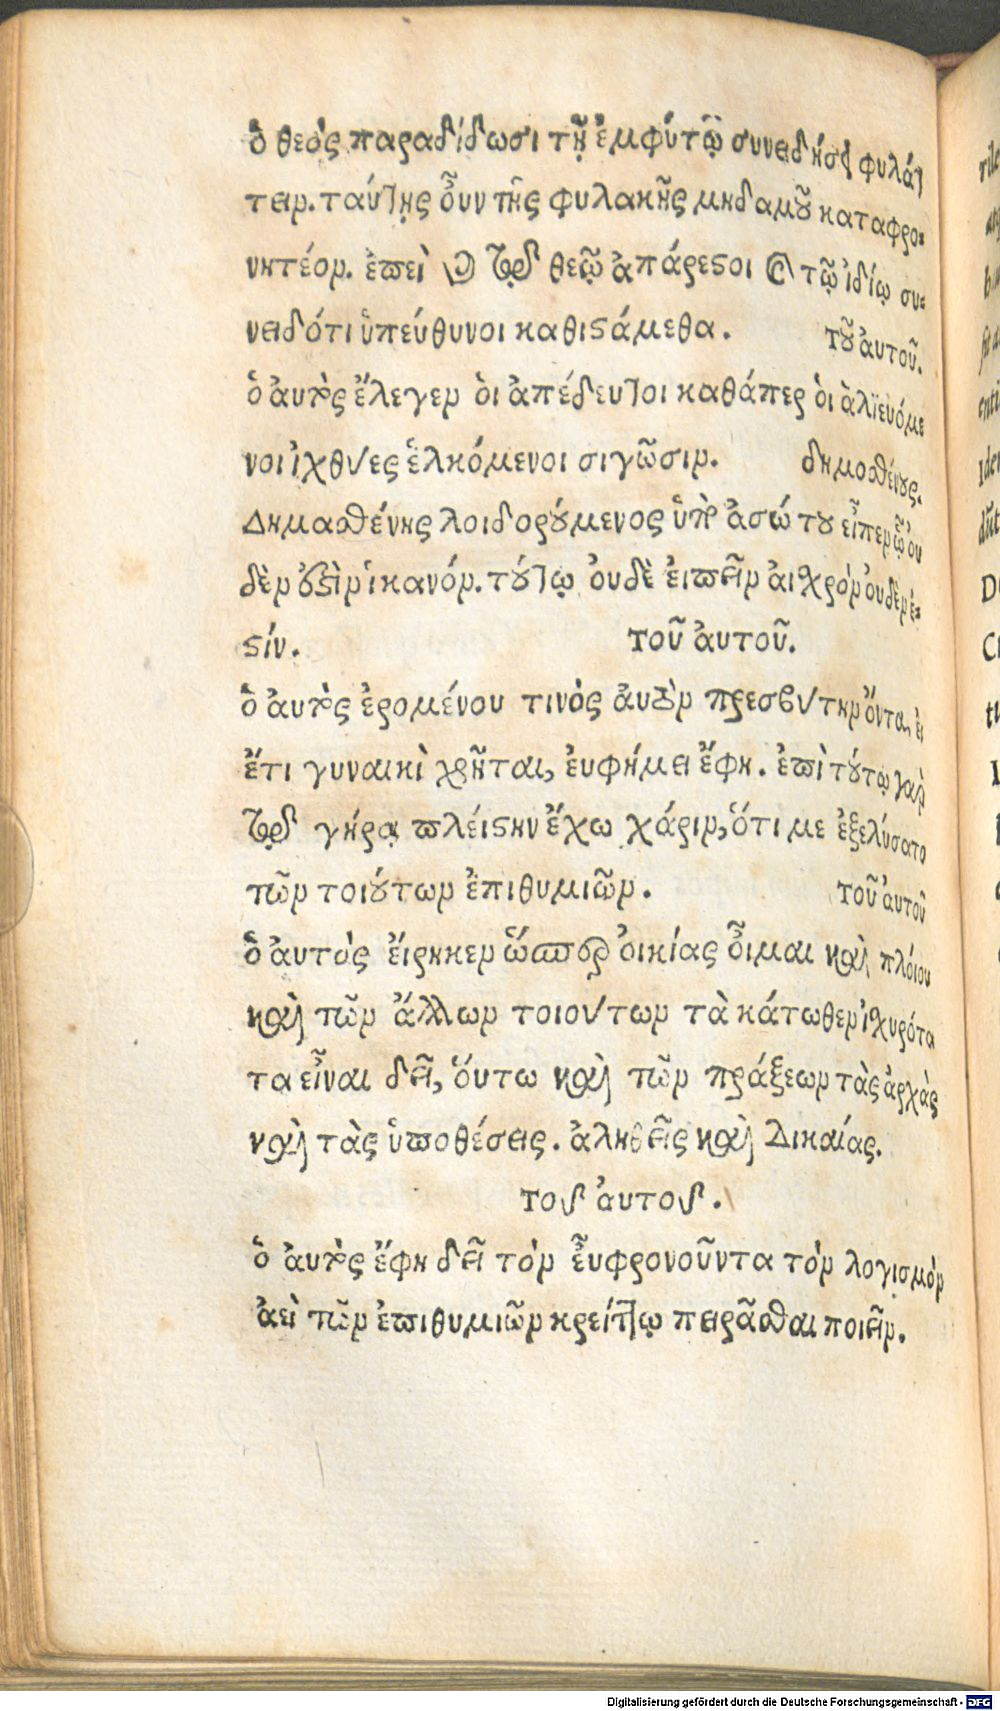 ὁ θεὸς παραδίδωσι τῇ ἐμφύτῳ συνειδήσει φυλάτ
τειν. ταύτης οὖν τῆς φυλακῆς μηδαμοῦ καταφρο-
νητέον. ἐπεὶ καὶ τῷ θεῷ ἀπάρεστοι καὶ τῷ ἰδίῳ συ-
νειδότι ὑπεύθυνοι καθιστάμεθα. τοῦ ἀυτοῦ.
ὁ ἀυτὸς ἔλεγεν ὁι ἀπέδευτοι καθάπερ ὁι ἁλϊευόμε
νοι ἰχθύες ἑλκόμενοι σιγῶσιν. δημοσθένους.
Δημοσθένης λοιδορούμενος ὑπὸ ἀσώτου εἶπεν ὦ ὀυ
δὲν ἱκανόν. τούτῳ ὀυδὲ ἐιπεῖν ἀισχρὸν ὀυδὲν ἐ-
στίν. τοῦ ἀυτοῦ.
ὁ ἀυτὸς ἐρομένου τινὸς ἀυτὸν πρεσβύτην ὄντα, ἐι
ἔτι γυναικὶ χρῆται, ἐυφήμει ἔφη. ἐπὶ τούτῳ γὰρ
τῷ γήρᾳ πλείστην ἔχω χάριν, ὅτι με ἐξελύσατο
τῶν τοιούτων ἐπιθυμιῶν. τοῦ ἀυτοῦ
ὁ ἀυτὸς ἔιρηκεν ὥσπερ ὀικίας οἶμαι καὶ πλόιου
καὶ τῶν ἄλλων τοιούτων τὰ κάτωθεν ἰσχυρότα
τα εἶναι δεῖ, ὅυτω καὶ τῶν πράξεων τὰς ἀρχὰς
καὶ τὰς ὑποθέσεις. ἀληθεῖς καὶ Δικαίας.
τοῦ ἀυτοῦ.
ὁ ἀυτὸς ἔφη δεῖ τὸν εὖφρονοῦντα τὸν λογισμὸν
ἀεὶ τῶν ἐπιθυμιῶν κρείττω πειρᾶσθαι ποιεῖν.
Digitalisierung gefördert durch die Deutsche Forschungsgemeinschaft - DFG